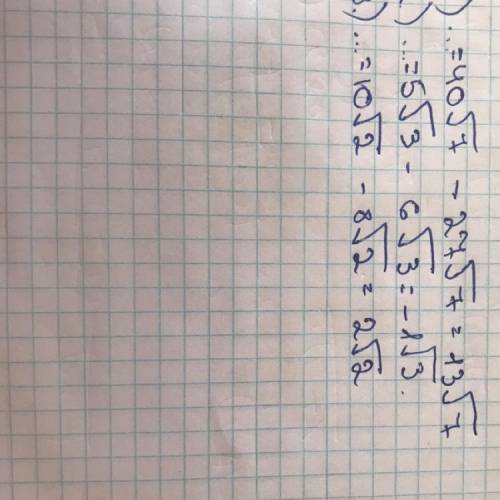 ) ...=40√7 - 27√7 = 13√7
) ...=5√3 - 6√3 = -1√3.
) ...=10√2 - 8√2 = 2√2